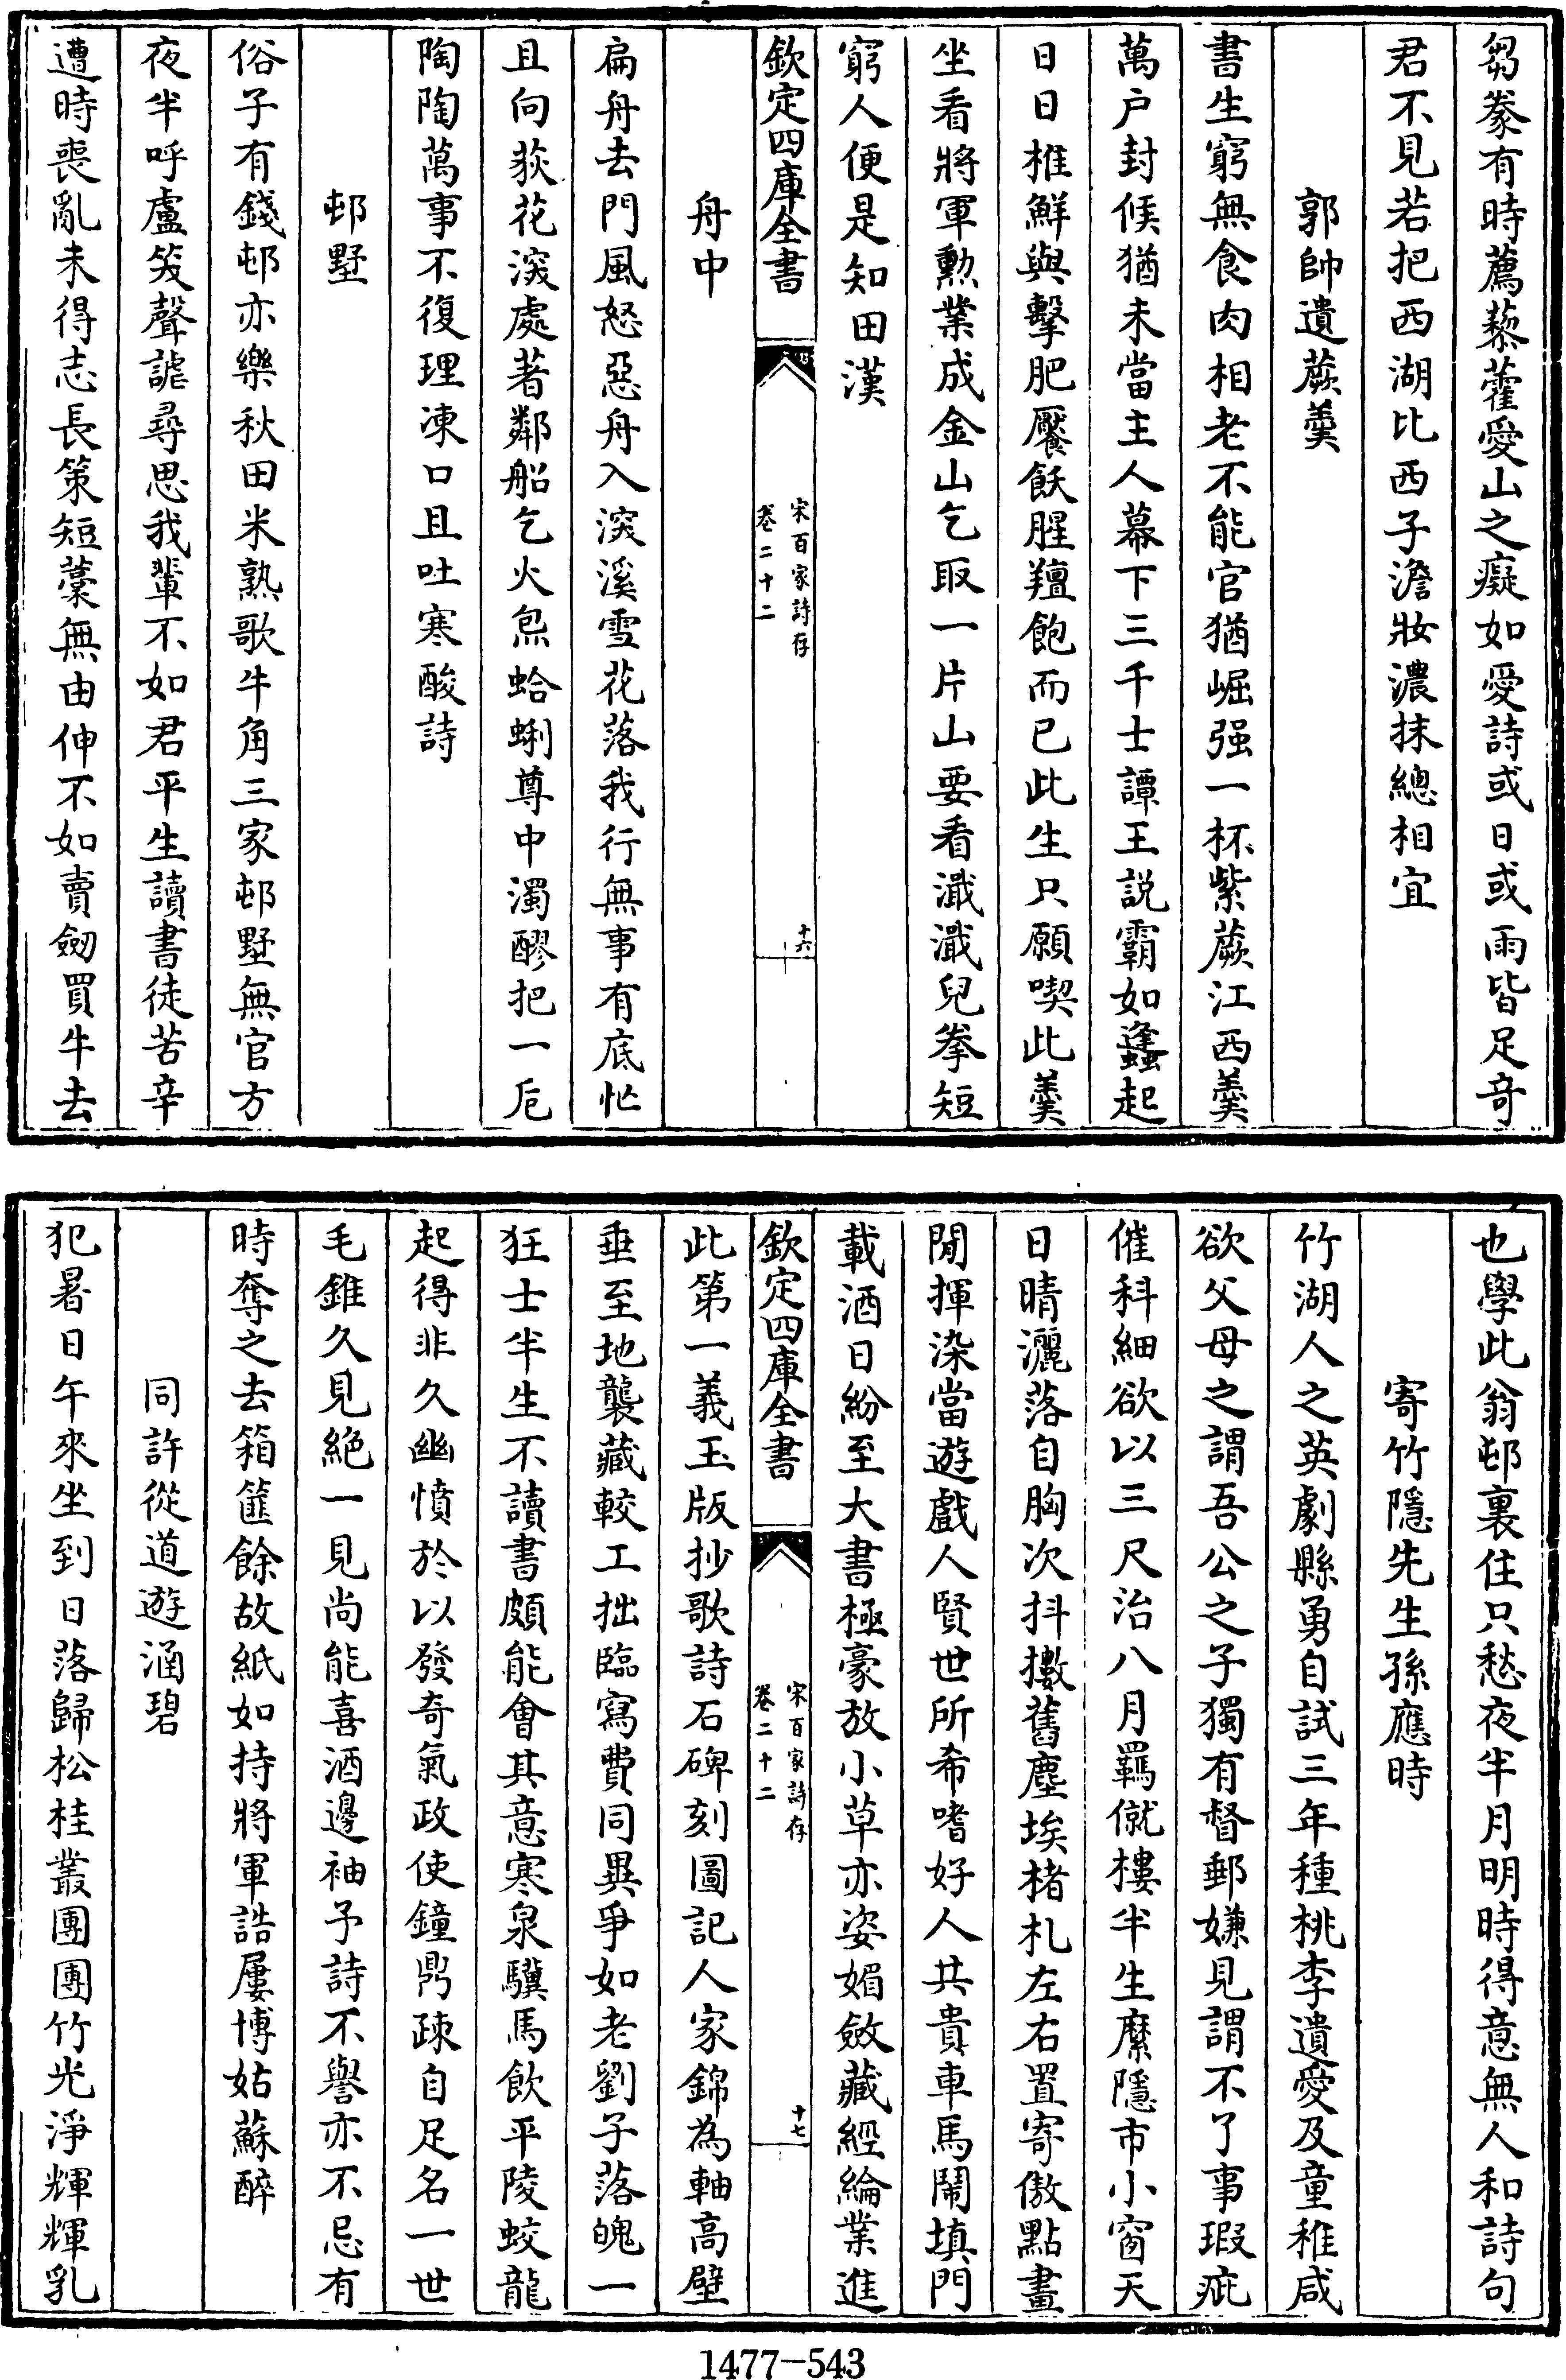 芻豢有時薦藜藿愛山之癡如愛詩或日或雨皆足奇
君不見若把西湖比西子澹妝濃抹總相宜
郭帥遺蕨羮
書生窮無食肉相老不能官猶崛强一杯紫蕨江西羮
萬户封侯猶未當主人幕下三千士譚王説霸如蠭起
日日椎鮮與擊肥饜飫腥羶飽而已此生只願喫此羮
坐看將軍勲業成金山乞取一片山要看濈濈兒拳短
窮人便是知田漢
欽定四庫全書
宋百家詩存
卷二十二
十六
舟中
扁舟去門風怒惡舟入深溪雪花落我行無事有底忙
且向荻花深處著鄰船乞火炰蛤蜊尊中濁醪把一巵
陶陶萬事不復理凍口且吐寒酸詩
邨墅
俗子有錢邨亦樂秋田米熟歌牛角三家邨墅無官方
夜半呼盧笑聲謔尋思我輩不如君平生讀書徒苦辛
遭時喪亂未得志長策短藁無由伸不如賣劒買牛去
也學此翁邨裏住只愁夜半月明時得意無人和詩句
寄竹隱先生孫應時
竹湖人之英劇縣勇自試三年種桃李遺愛及童稚咸
欲父母之謂吾公之子獨有督郵嫌見謂不了事瑕疵
催科細欲以三尺治八月羈僦樓半生縻隱市小窗天
日晴灑落自胸次抖擻舊塵埃楮札左右置寄傲點畫
閒揮染當遊戲人賢世所希嗜好人共貴車馬鬧填門
載酒日紛至大書極豪放小草亦姿媚斂藏經綸業進
欽定四庫全書
宋百家詩存
卷二十二
十七
此第一義玉版抄歌詩石碑刻圖記人家錦為軸高壁
垂至地襲藏較工拙臨寫費同異爭如老劉子落魄一
狂士半生不讀書頗能會其意寒泉驥馬飲平陵蛟龍
起得非久幽憤於以發奇氣政使鐘鼎疎自足名一世
毛錐久見絶一見尚能喜酒邊袖予詩不譽亦不忌有
時奪之去箱篚餘故紙如持將軍誥屢博姑蘇醉
同許從道遊涵碧
犯暑日午來坐到日落歸松桂叢團團竹光淨輝輝乳
1477-543